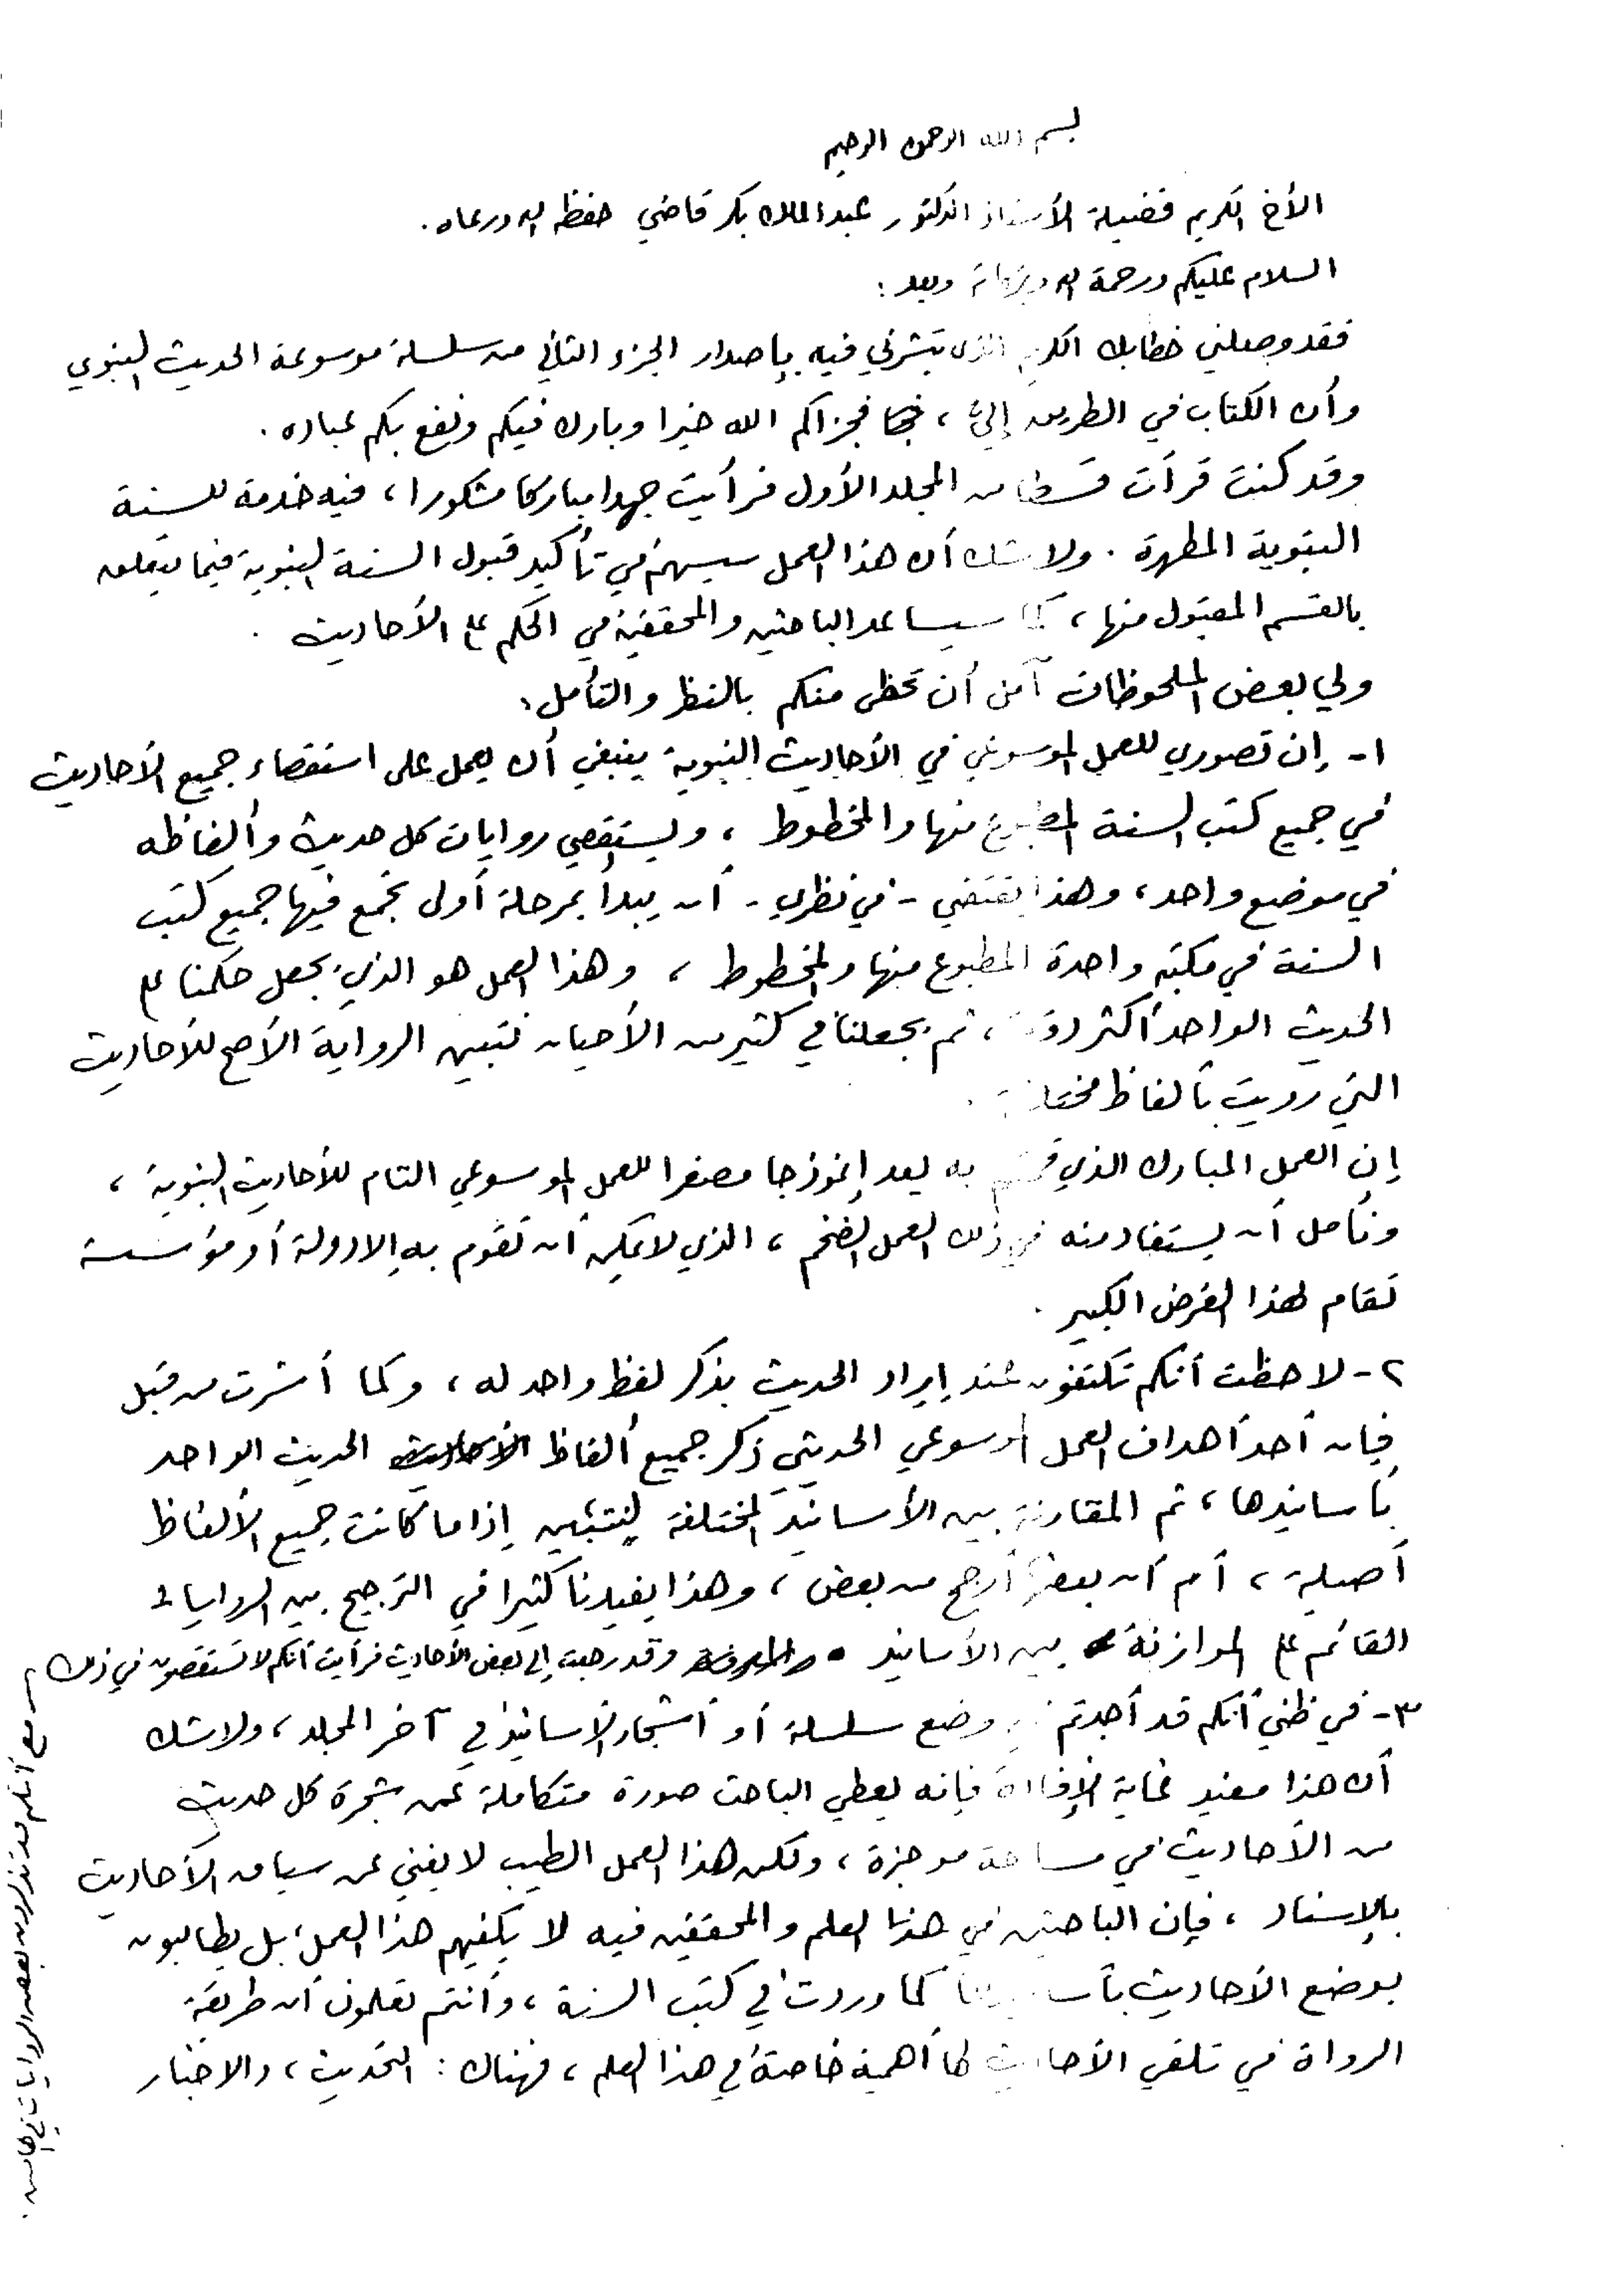 بسم الله الرحمن الرحيم
الأخ الكريم فضيلة الأستاذ الدكتور عبدالملك بكر قاضي حفظه الله ورعاه .
السلام عليكم ورحمة الله وبركاته وبعد :
فقد وصلني خطابك الكريم الذي تبشرني فيه بإصدار الجزء الثاني من سلسلة موسوعة الحديث النبوي
وأن الكتاب في الطريق إليّ ، فجزاكم الله خيرا وبارك فيكم ونفع بكم عباده .
وقد كنت قرأت قسطا من المجلد الأول فرأيت جهدا مباركا مشكورا ، فيه خدمة للسنة
النبوية المطهرة . ولا شك أن هذا العمل سيسهم في تأكيد قبول السنة النبوية فيما يتعلق
بالقسم المقبول منها ، كما سيساعد الباحثين والمحققين في الحكم على الأحاديث .
ولي بعض الملحوظات آمل أن تحظى منكم بالنظر والتأمل :
١- إن تصوري للعمل الموسوعي في الأحاديث النبوية ينبغي أن يعمل على استقصاء جميع الأحاديث
في جميع كتب السنة المطبوع منها والمخطوط ، ويستقصي روايات كل حديث وألفاظه
في موضع واحد ، وهذا يقتضي - في نظري - أن يبدأ بمرحلة أولى تجمع فيها جميع كتب
السنة في مكتبة واحدة المطبوع منها والمخطوط ، وهذا العمل هو الذي يجعل حكمنا على
الحديث الواحد أكثر دقة ، ثم يجعلنا في كثير من الأحيان نتبين الرواية الأصح للأحاديث
التي رويت بألفاظ مختلفة .
إن العمل المبارك الذي قمتم به يعد إنموذجا مصغرا للعمل الموسوعي التام للأحاديث النبوية ،
ونأمل أن يستفاد منه في ذلك العمل الضخم ، الذي لا يمكن أن تقوم به إلا دولة أو مؤسسة
تقام لهذا الغرض الكبير .
٢- لاحظت أنكم تكتفون عند إيراد الحديث بذكر لفظ واحد له ، وكما أشرت من قبل
فإن أحد أهداف العمل الموسوعي الحديثي ذكر جميع ألفاظ الحديث الواحد
بأسانيدها ، ثم المقارنة بين الأسانيد المختلفة ليتبين إذا ما كانت جميع الألفاظ
أصيلة ، أم أن بعضها أرجح من بعض ، وهذا يفيدنا كثيرا في الترجيح بين الروايات
القائم على الموازنة بين الأسانيد . وقد رجعت إلى بعض الأحاديث فرأيت أنكم لا تستقصون في ذلك
مع أنكم قد تذكرون بعض الروايات في الهامش .
٣- في ظني أنكم قد أجدتم في وضع سلسلة أو أشجار الأسانيد في آخر المجلد ، ولا شك
أن هذا مفيد غاية الإفادة فإنه يعطي الباحث صورة متكاملة عن شجرة كل حديث
من الأحاديث في مساحة موجزة ، ولكن هذا العمل الطيب لا يغني عن سياق الأحاديث
بالإسناد ، فإن الباحثين في هذا العلم والمحققين فيه لا يكفيهم هذا العمل ، بل يطالبون
بوضع الأحاديث بأسانيدها كما وردت في كتب السنة ، وأنتم تعلمون أن طريقة
الرواة في تلقي الأحاديث لها أهمية خاصة في هذا العلم ، فهناك : التحديث ، والاخبار